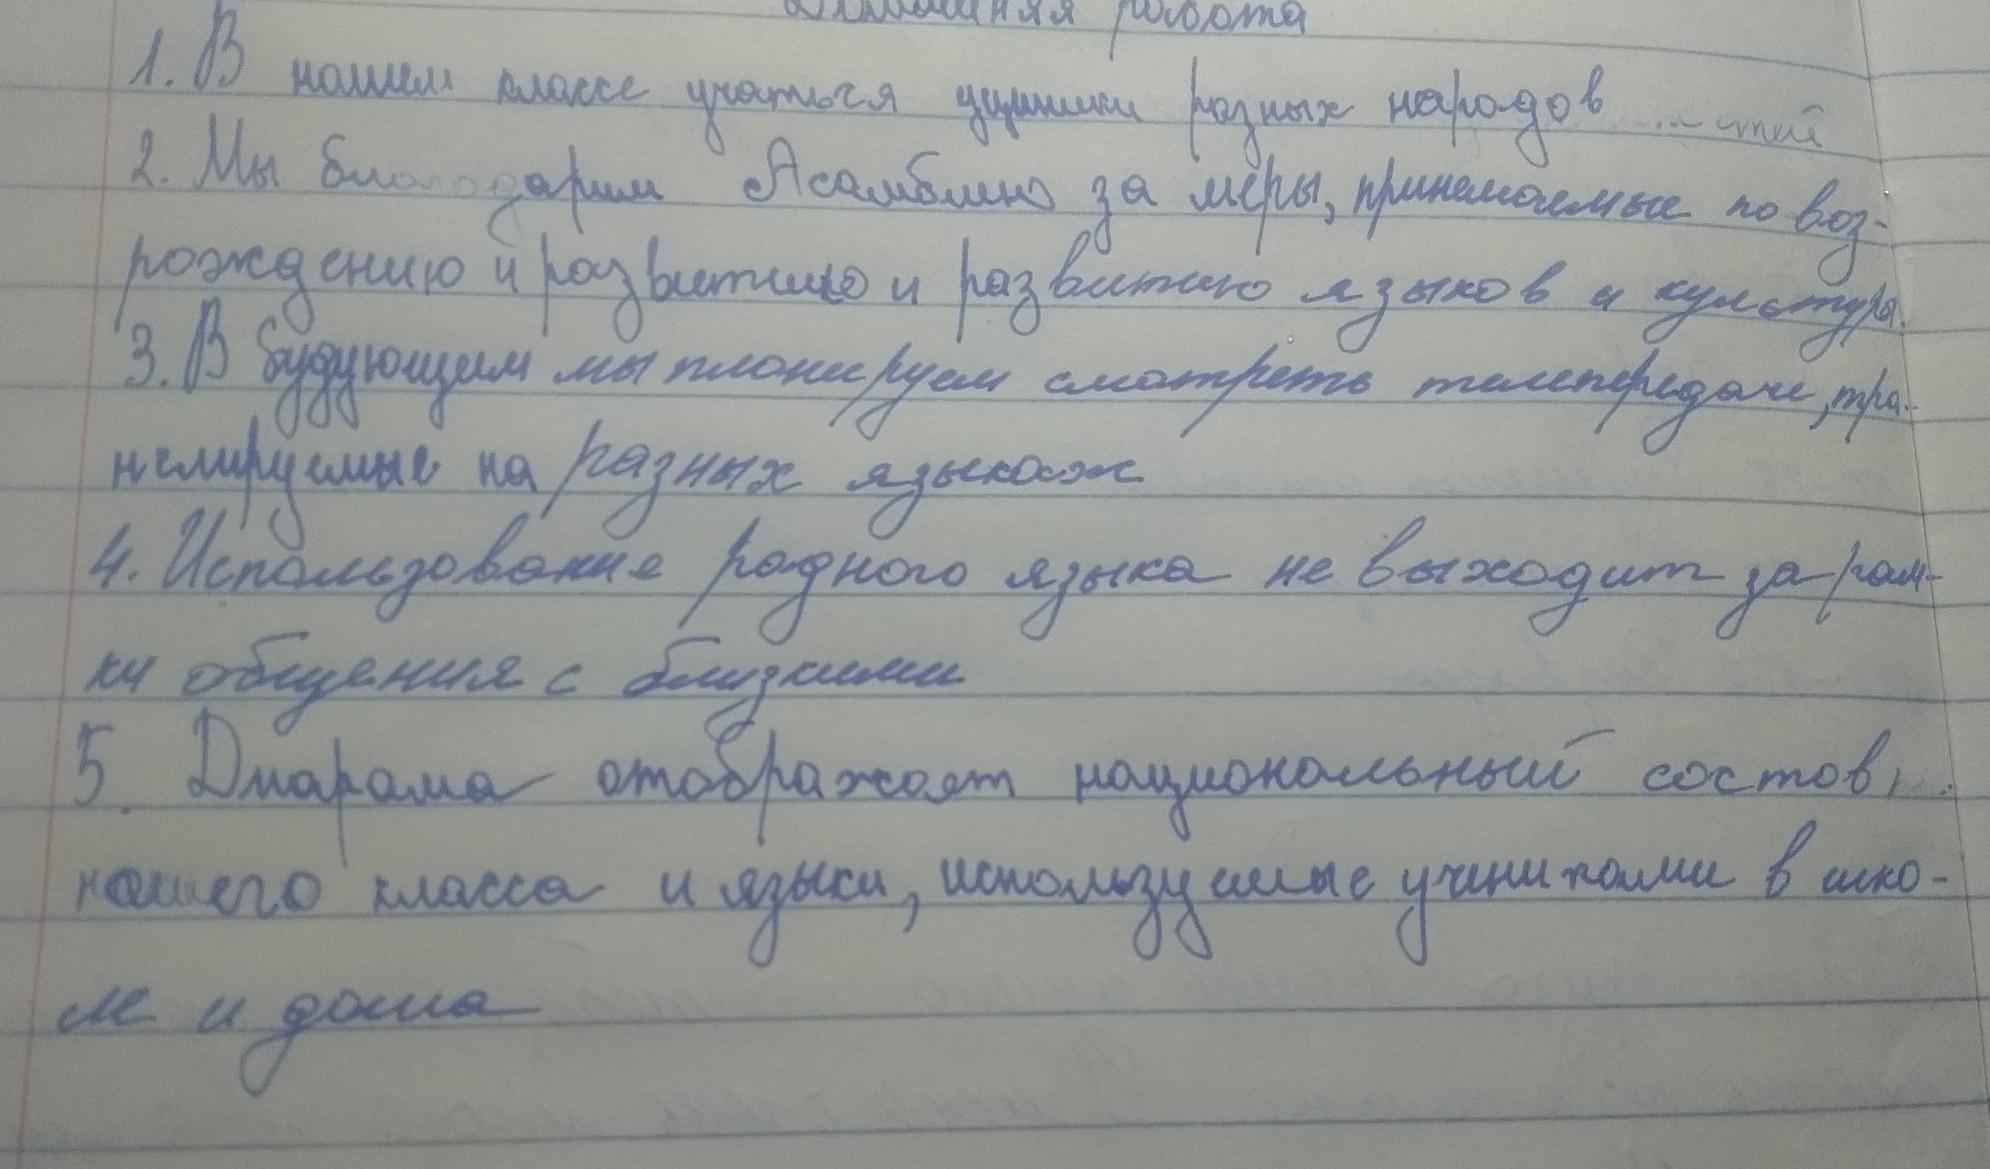 Домашняя работа
1. В нашем классе учаться ученики разных народов
2. Мы благодарим Асамблию за меры, принемаемые по воз-
рождению и развитию и развитию языков и культуры.
3. В будующим мы планируем смотреть телепередачи, тра-
нслируемые на разных языках
4. Использование родного языка не выходит за рам-
ки общения с близкими
5. Диарама отображает национальный состов
нашего класса и языки, используемые учениками в шко-
ле и дома